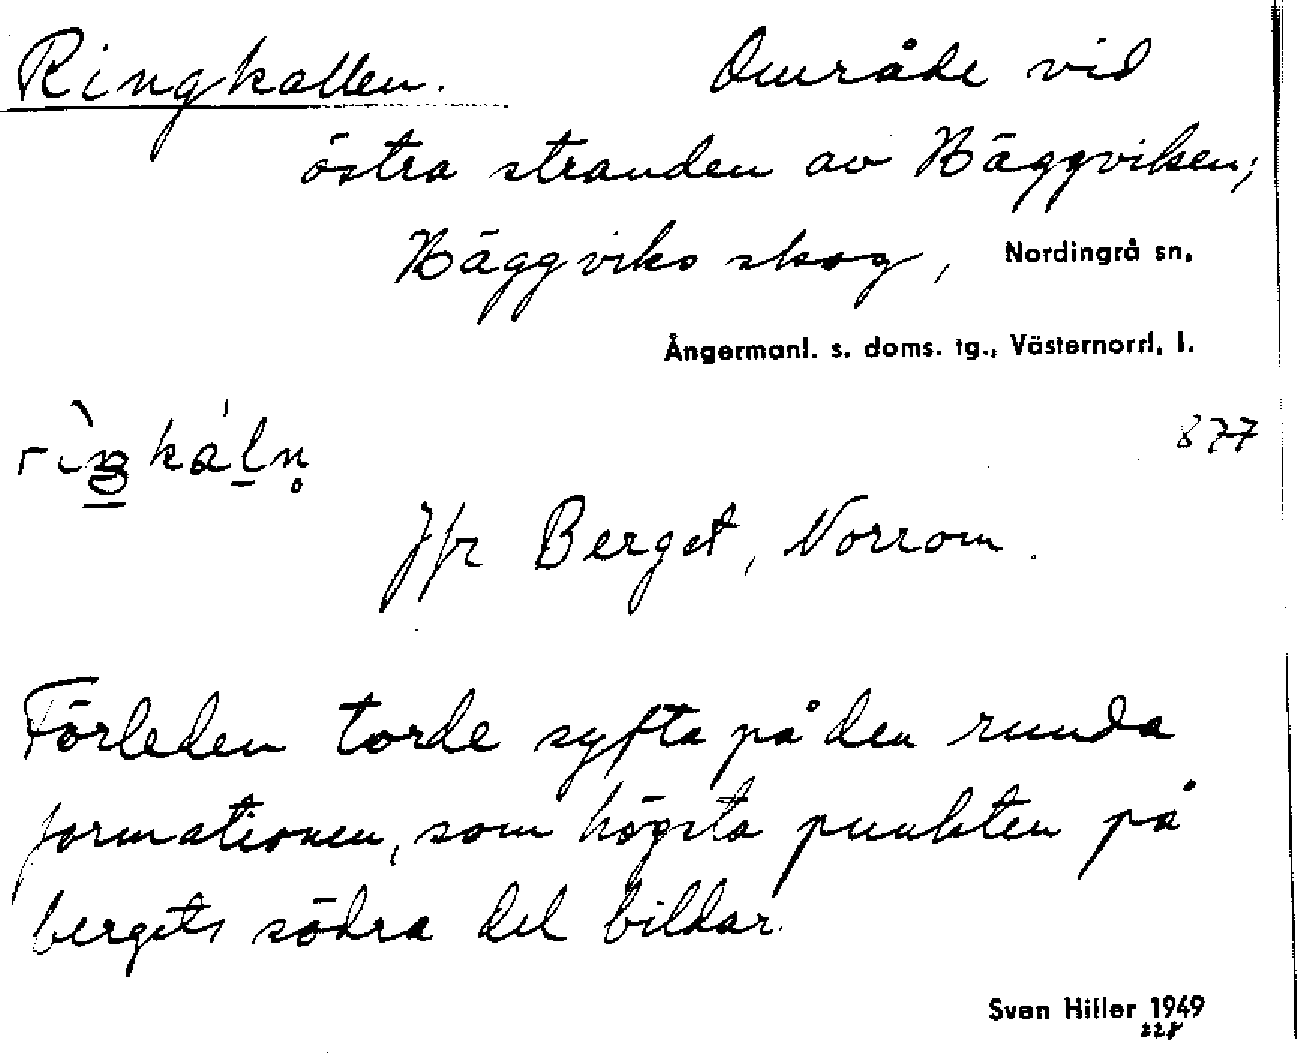 Ringkallen. Område vid
östra stranden av Häggviken;
Häggviks skog, Nordingrå sn.
Ångermanl. s. doms. tg., Västernorrl. l.
877
Jfr Berget, Norrom.
Förleden torde syfta på den runda
formationen, som högsta punkten på
bergets södra del bildar.
Sven Hiller 1949
228